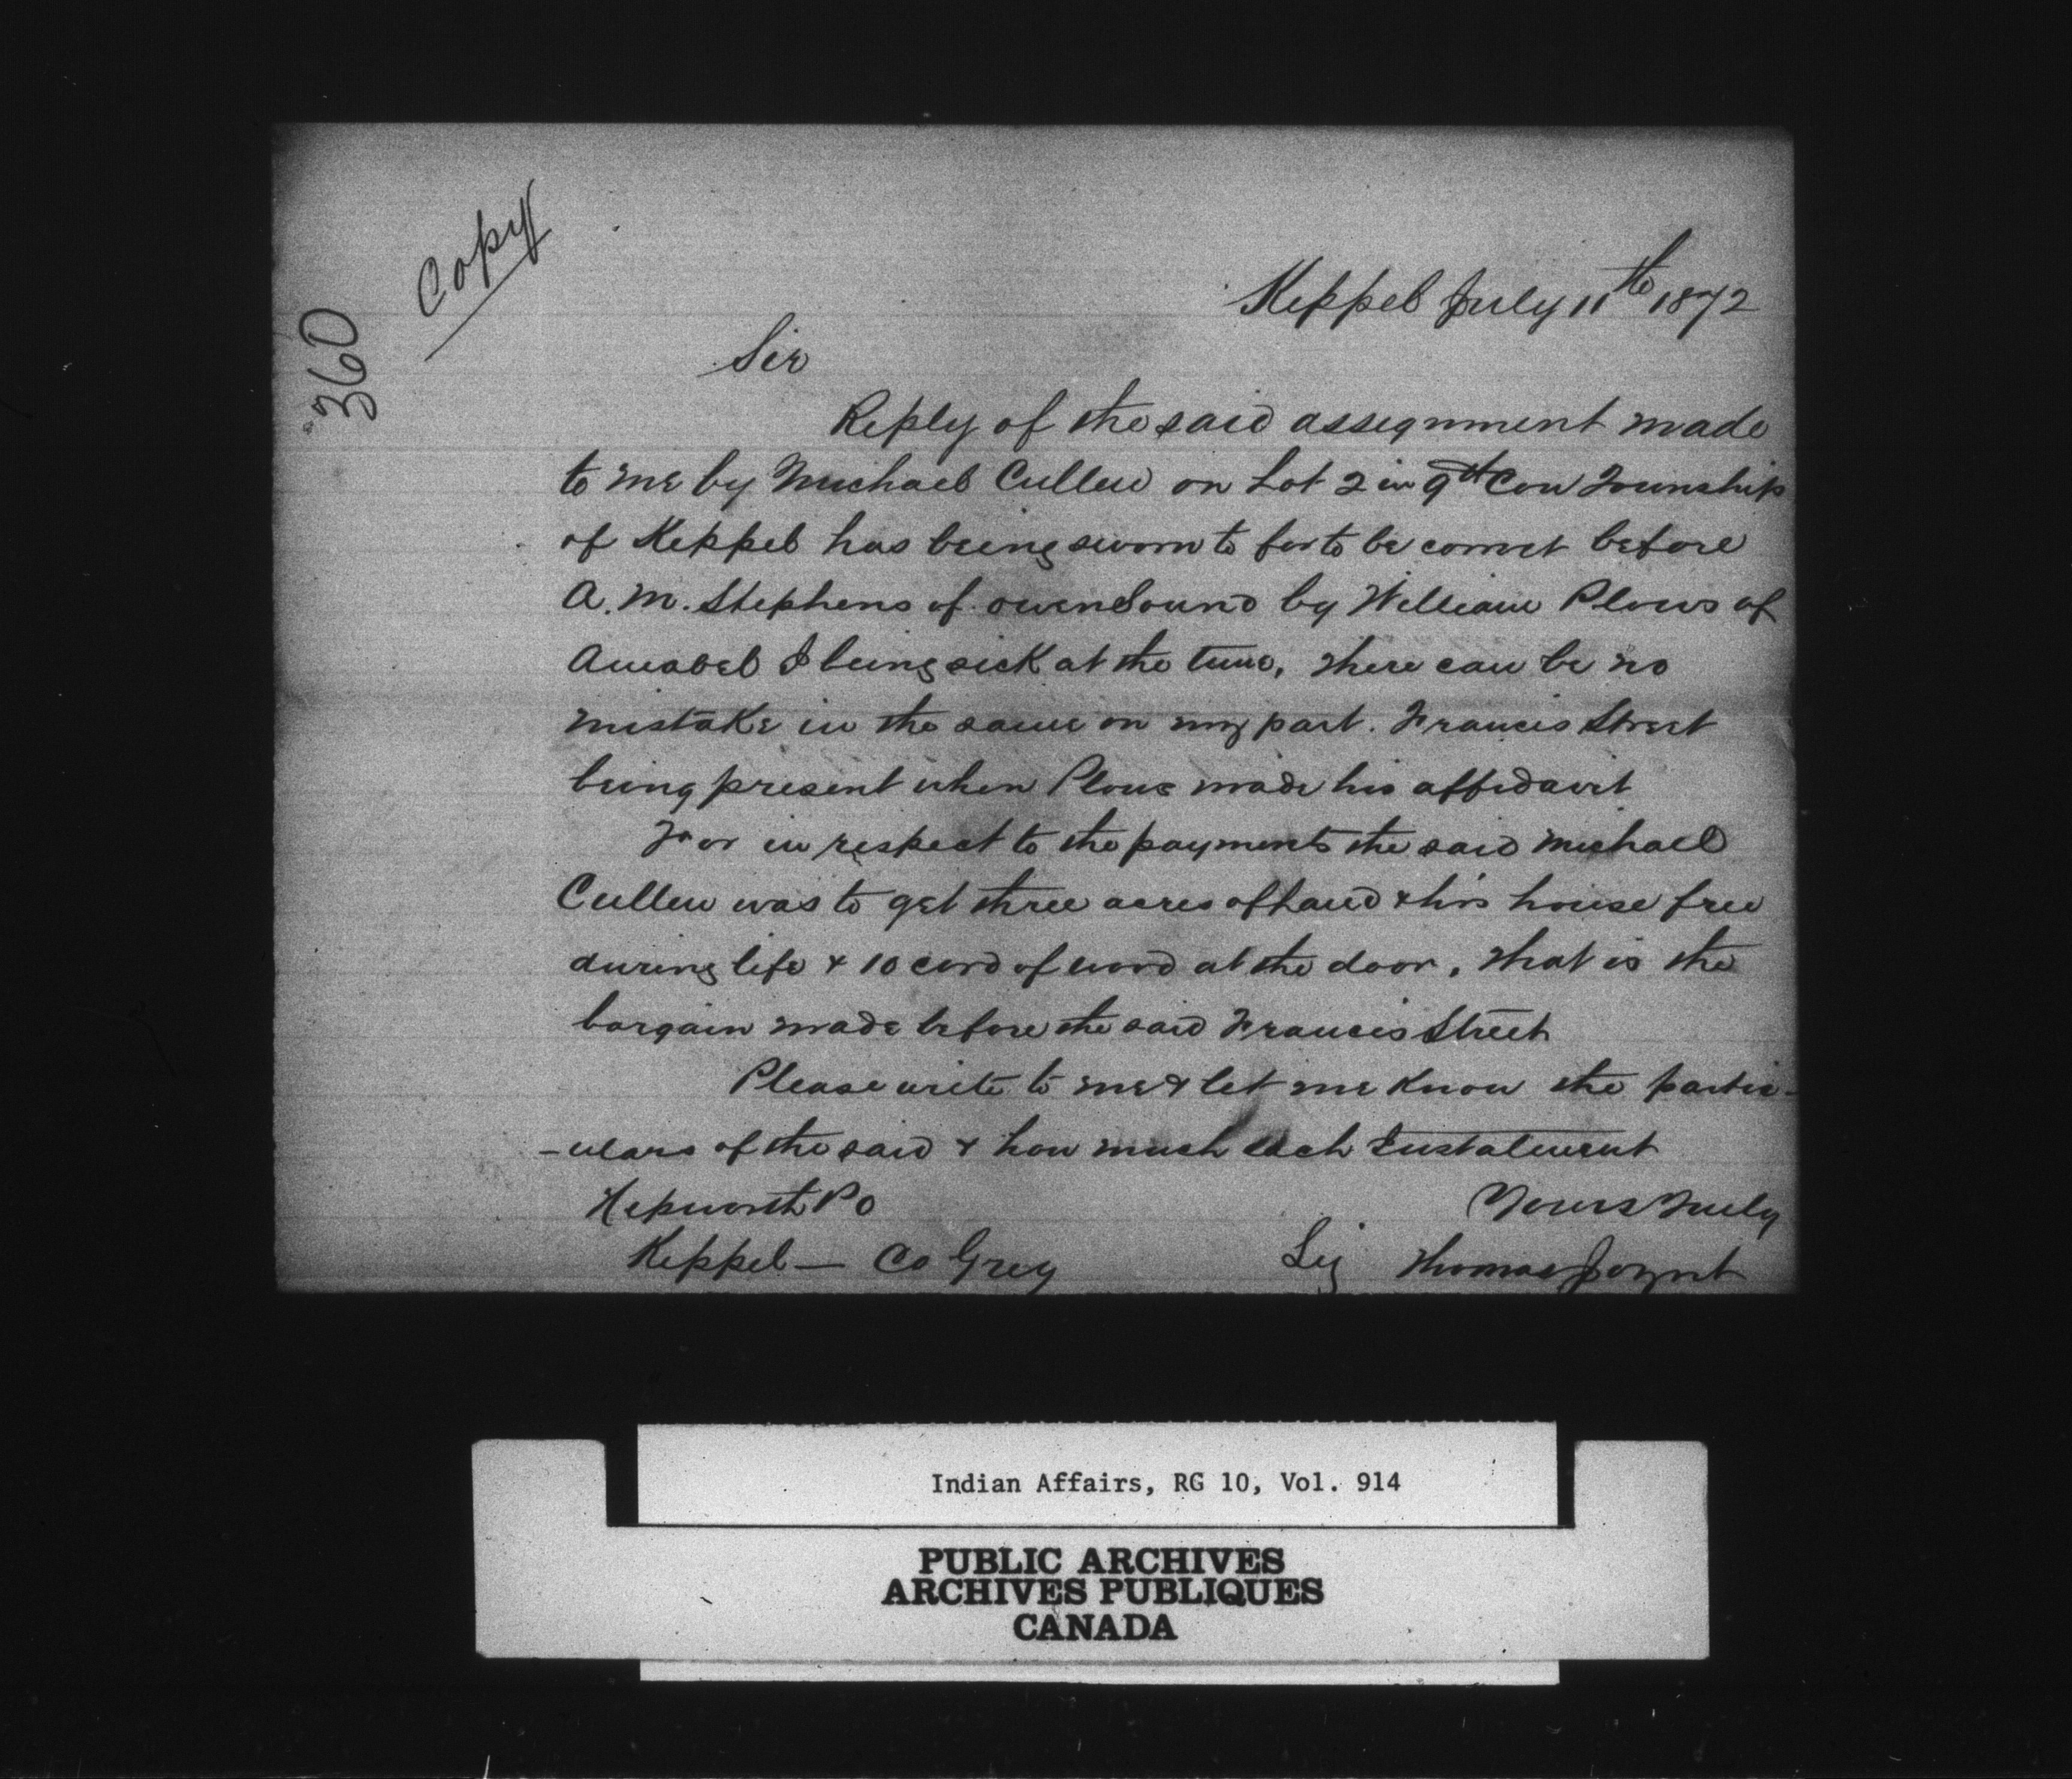 Copy
360
Keppel July 11th 1872
Sir
Reply of the said assignment made
to me by Michael Cullen on Lot 2 in 9th Con Township
of Keppel has being sworn to for to be correct before
A. M. Stephens of Owen Sound by William Plows of
Amabel I being sick at the time, there can be no
mistake in the same on my part. Francis Street
being present when Plows made his affidavit
For in respect to the payments the said Michael
Cullen was to get three acres of land & his house free
during life & 10 cord of wood at the door, that is the
bargain made before the said Francis Street
Please write to me & let me know the partic-
-ulars of the said & how much each Instalment
Hepworth PO Yours Truly
Keppel — Co Grey Sig Thomas Joynt
Indian Affairs, RG 10, Vol. 914
PUBLIC ARCHIVES
ARCHIVES PUBLIQUES
CANADA